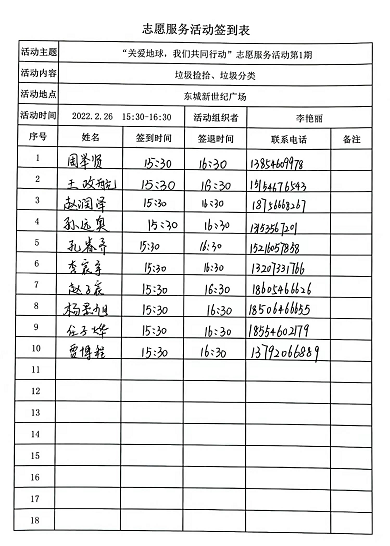 志愿服务活动签到表
活动主题 “关爱地球，我们共同行动”志愿服务活动第1期
活动内容 垃圾捡拾、垃圾分类
活动地点 东城新世纪广场
活动时间 2022.2.26 15:30-16:30 活动组织者 李艳丽
序号 姓名 签到时间 签退时间 联系电话 备注
1 周举贤 15:30 16:30 13854609978
2 王政 15:30 16:30 15154676543
3 赵润泽 15:30 16:30 18756668267
4 孙远奥 15:30 16:30
5 孔春齐 15:30 16:30 15216057858
6 李宸宇 15:30 16:30 13207331766
7 赵子宸 15:30 16:30 18605466626
8 杨 旭 15:30 16:30 18506466655
9 任子烨 15:30 16:30 18554602179
10 贾博程 15:30 16:30 13792066889
11
12
13
14
15
16
17
18